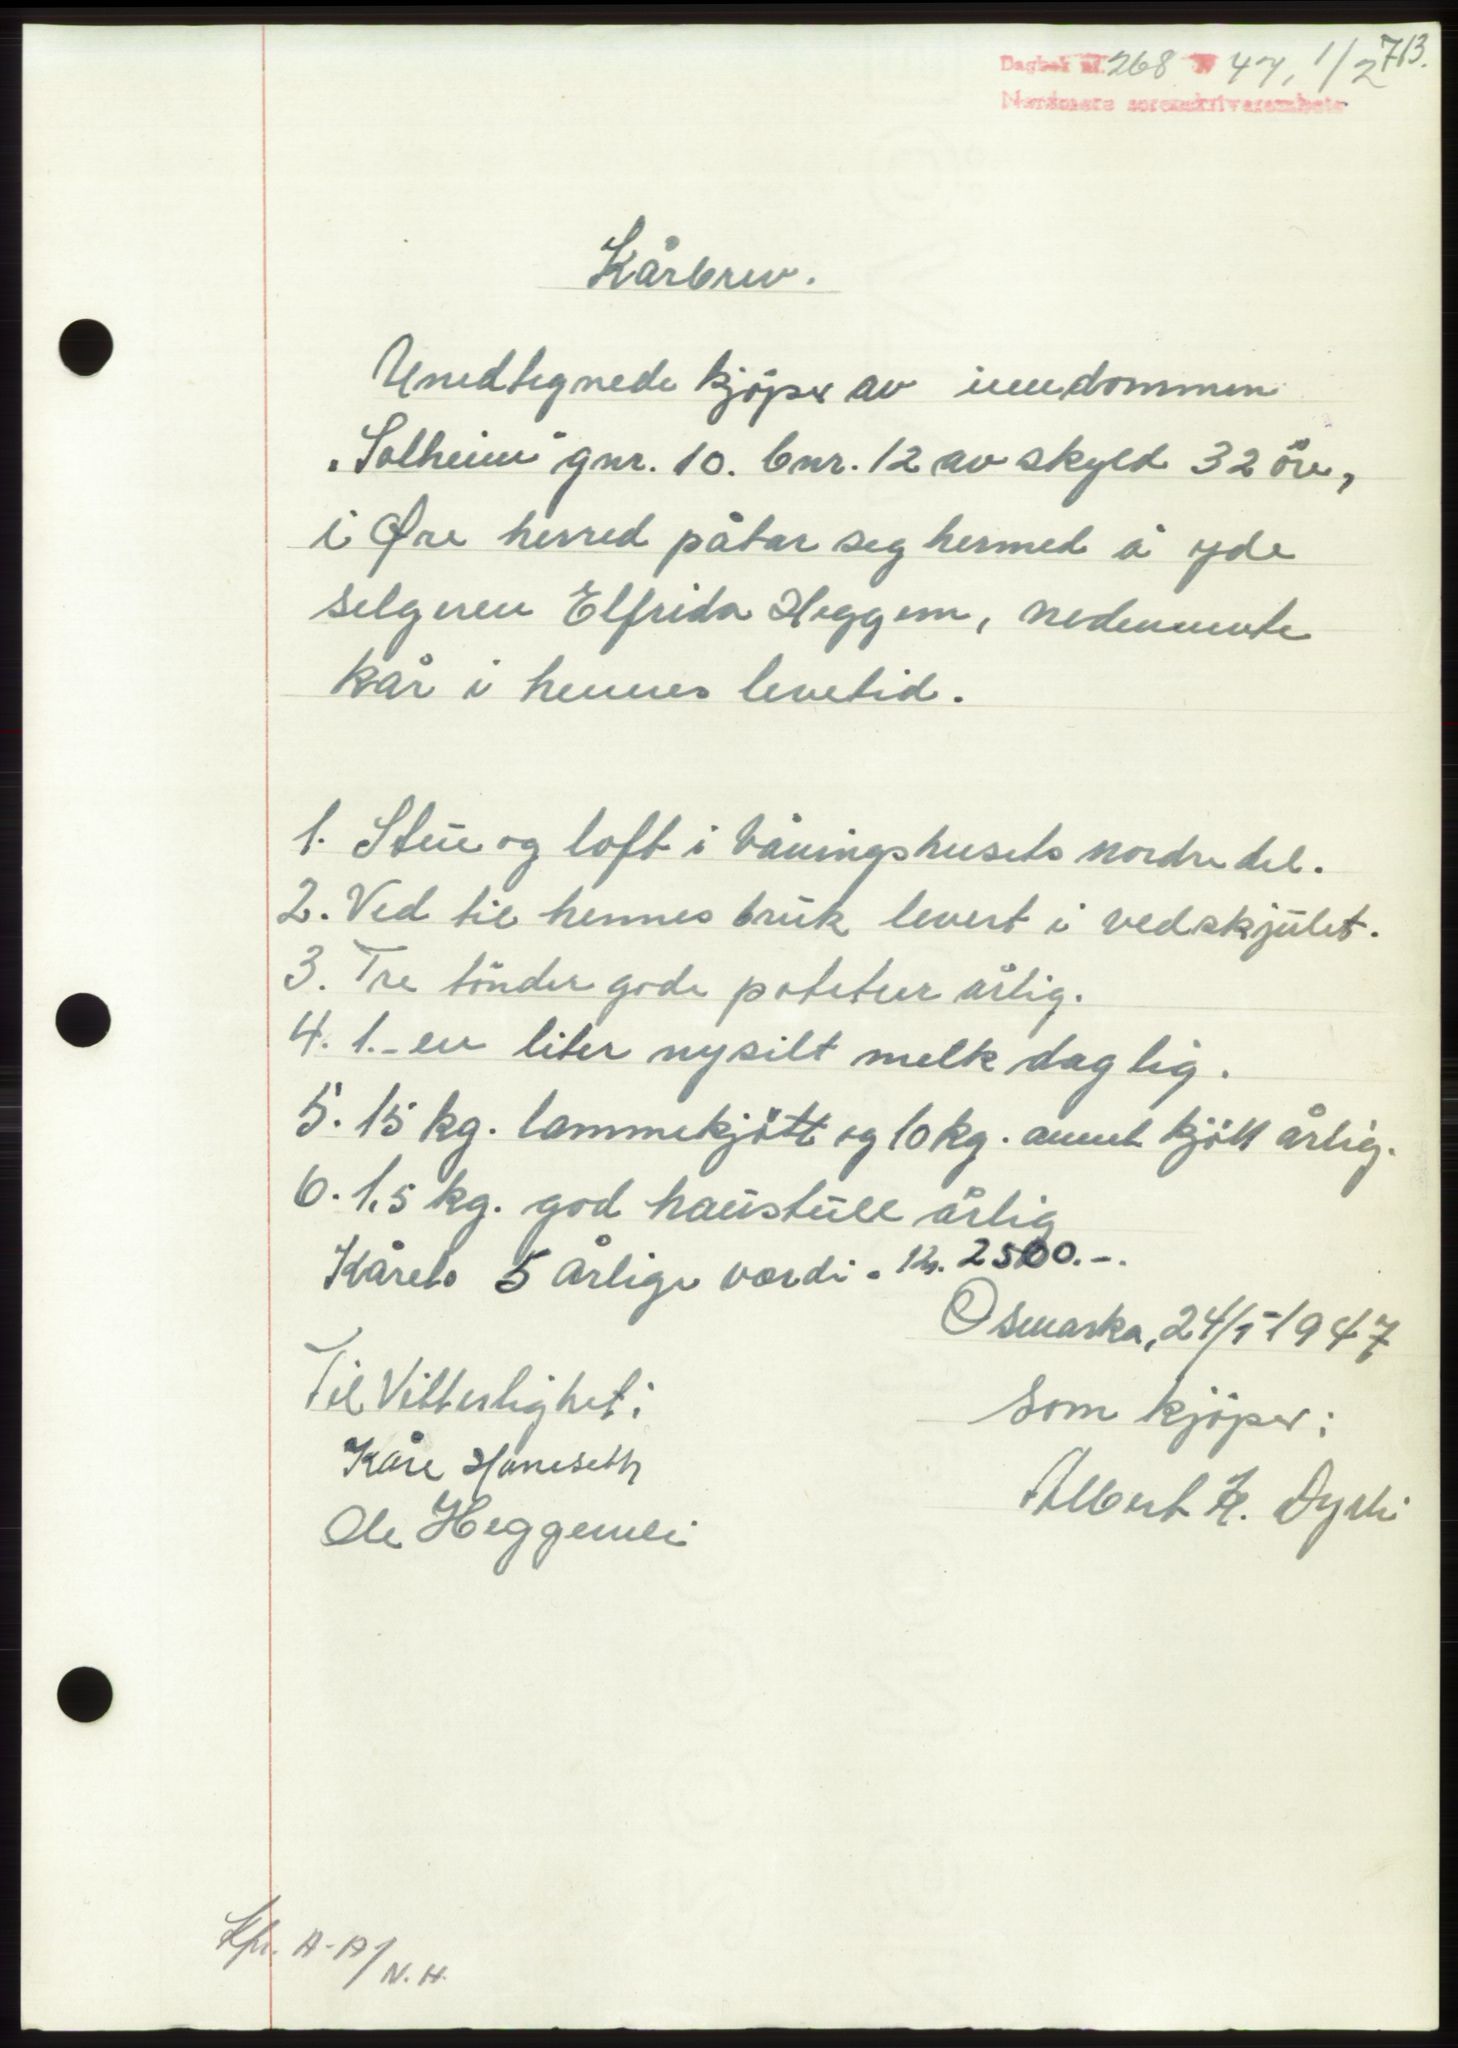 713.
Dagbok nr. 268 19 47, 1/2
Nordmøre sorenskriverembete
Kårbrev.
Unedtegnede kjöper av iendommen
"Solheim" gnr. 10. bnr. 12 av skyld 32 öre,
i Øre herred påtar seg hermed å yde
selgeren Elfrida Heggem, nedenevnte
kår i hennes levetid.
1. Stue og loft i våningshusets nordre del.
2. Ved til hennes bruk levert i vedskjulet.
3. Tre tönder gode poteter årlig.
4. 1.- en liter nysilt melk daglig.
5. 15 kg. lammekjött og 10 kg. annet kjött årlig.
6. 1,5 kg. god haustull årlig
Kårets 5 årlige værdi. Kr. 2500.-.
Osmarka, 24/1-1947
Til Vitterlighet:
Som kjöper:
Kåre Haneseth
Albert H. Dyrli
Ole Heggemli
Kpr. A-A/N.H.